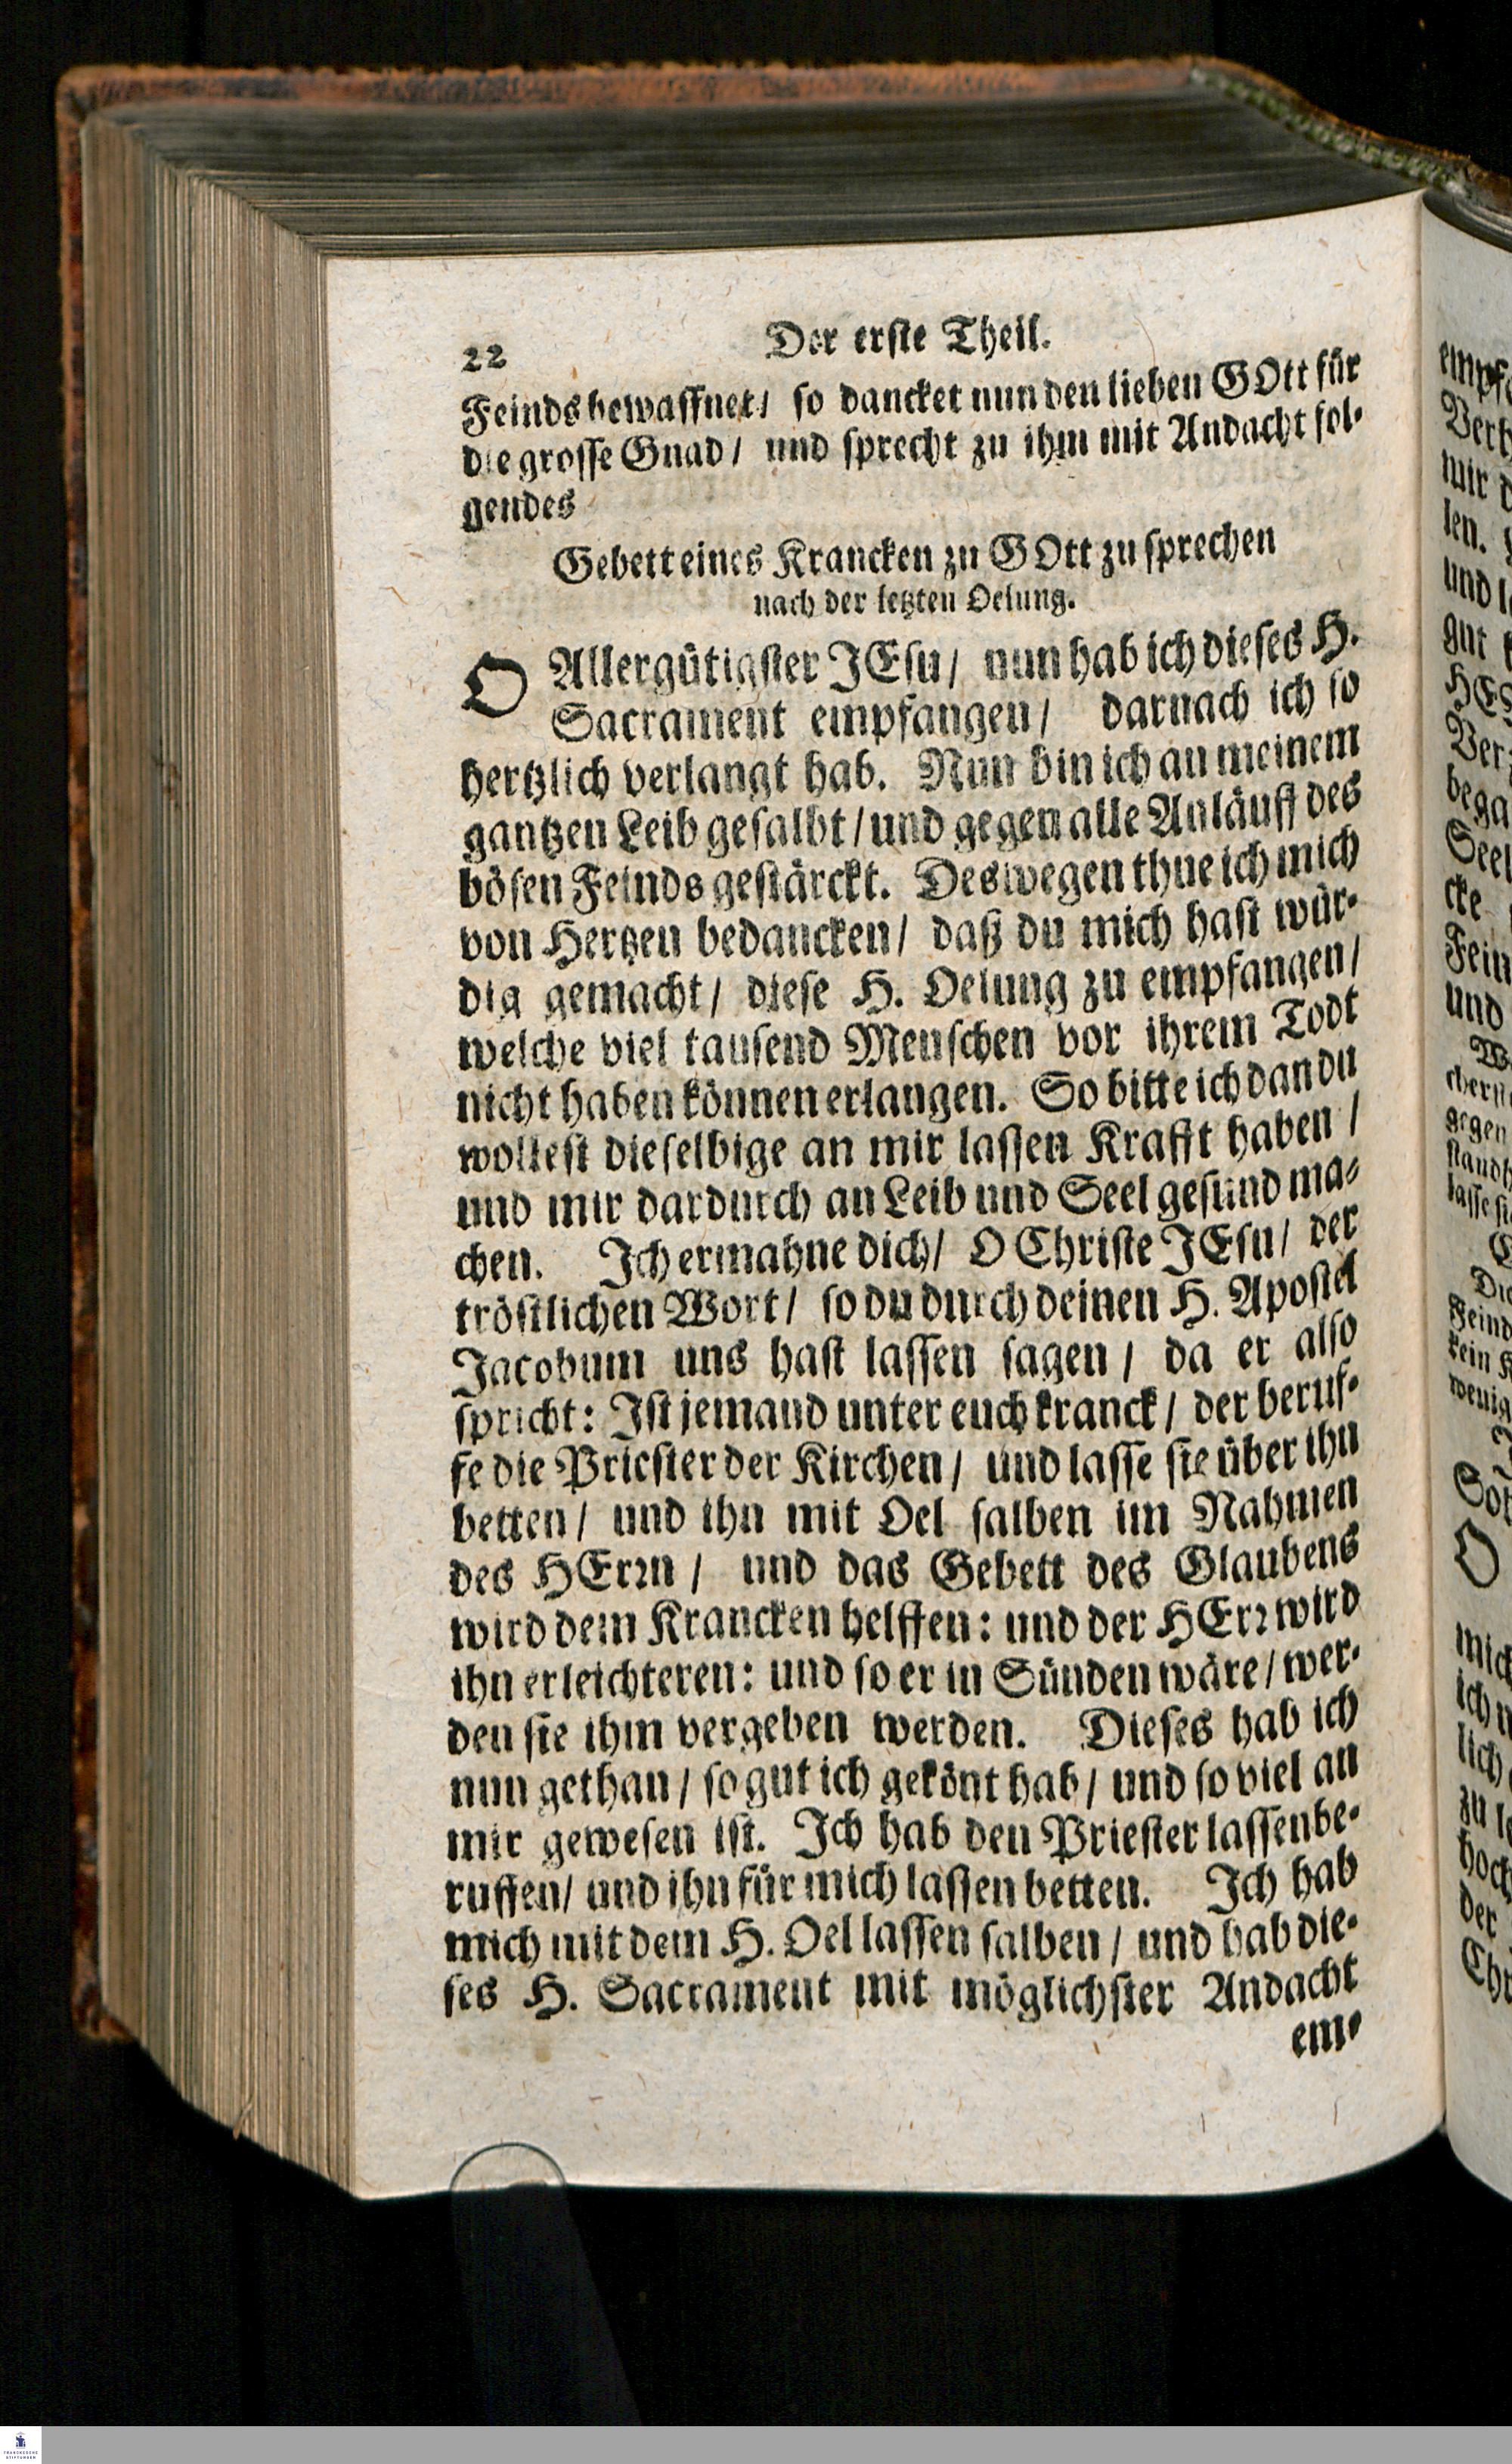 22 Der erste Theil.
Feinds bewaffnet / so dancket nun den lieben GOtt für
die grosse Gnad / und sprecht zu ihm mit Andacht fol-
gendes
Gebett eines Krancken zu GOtt zu sprechen
nach der letzten Oelung.
O Allergütigster JEsu / nun hab ich dieses H.
Sacrament empfangen / darnach ich so
hertzlich verlangt hab. Nun bin ich an meinem
gantzen Leib gesalbt / und gegen alle Anläuff des
bösen Feinds gestärckt. Deswegen thue ich mich
von Hertzen bedancken / daß du mich hast wür-
dig gemacht / diese H. Oelung zu empfangen /
welche viel tausend Menschen vor ihrem Todt
nicht haben können erlangen. So bitte ich dan du
wollest dieselbige an mir lassen Krafft haben /
und mir dardurch an Leib und Seel gesund ma-
chen. Ich ermahne dich / O Christe JEsu / der
tröstlichen Wort / so du durch deinen H. Apostel
Jacobum uns hast lassen sagen / da er also
spricht: Ist jemand unter euch kranck / der beruf-
fe die Priester der Kirchen / und lasse sie über ihn
betten / und ihn mit Oel salben im Nahmen
des HErrn / und das Gebett des Glaubens
wird dem Krancken helffen: und der HErr wird
ihn erleichteren: und so er in Sünden wäre / wer-
den sie ihm vergeben werden. Dieses hab ich
nun gethan / so gut ich gekönt hab / und so viel an
mir gewesen ist. Ich hab den Priester lassen be-
ruffen / und ihn für mich lassen betten. Ich hab
mich mit dem H. Oel lassen salben / und hab die-
ses H. Sacrament mit möglichster Andacht
em-